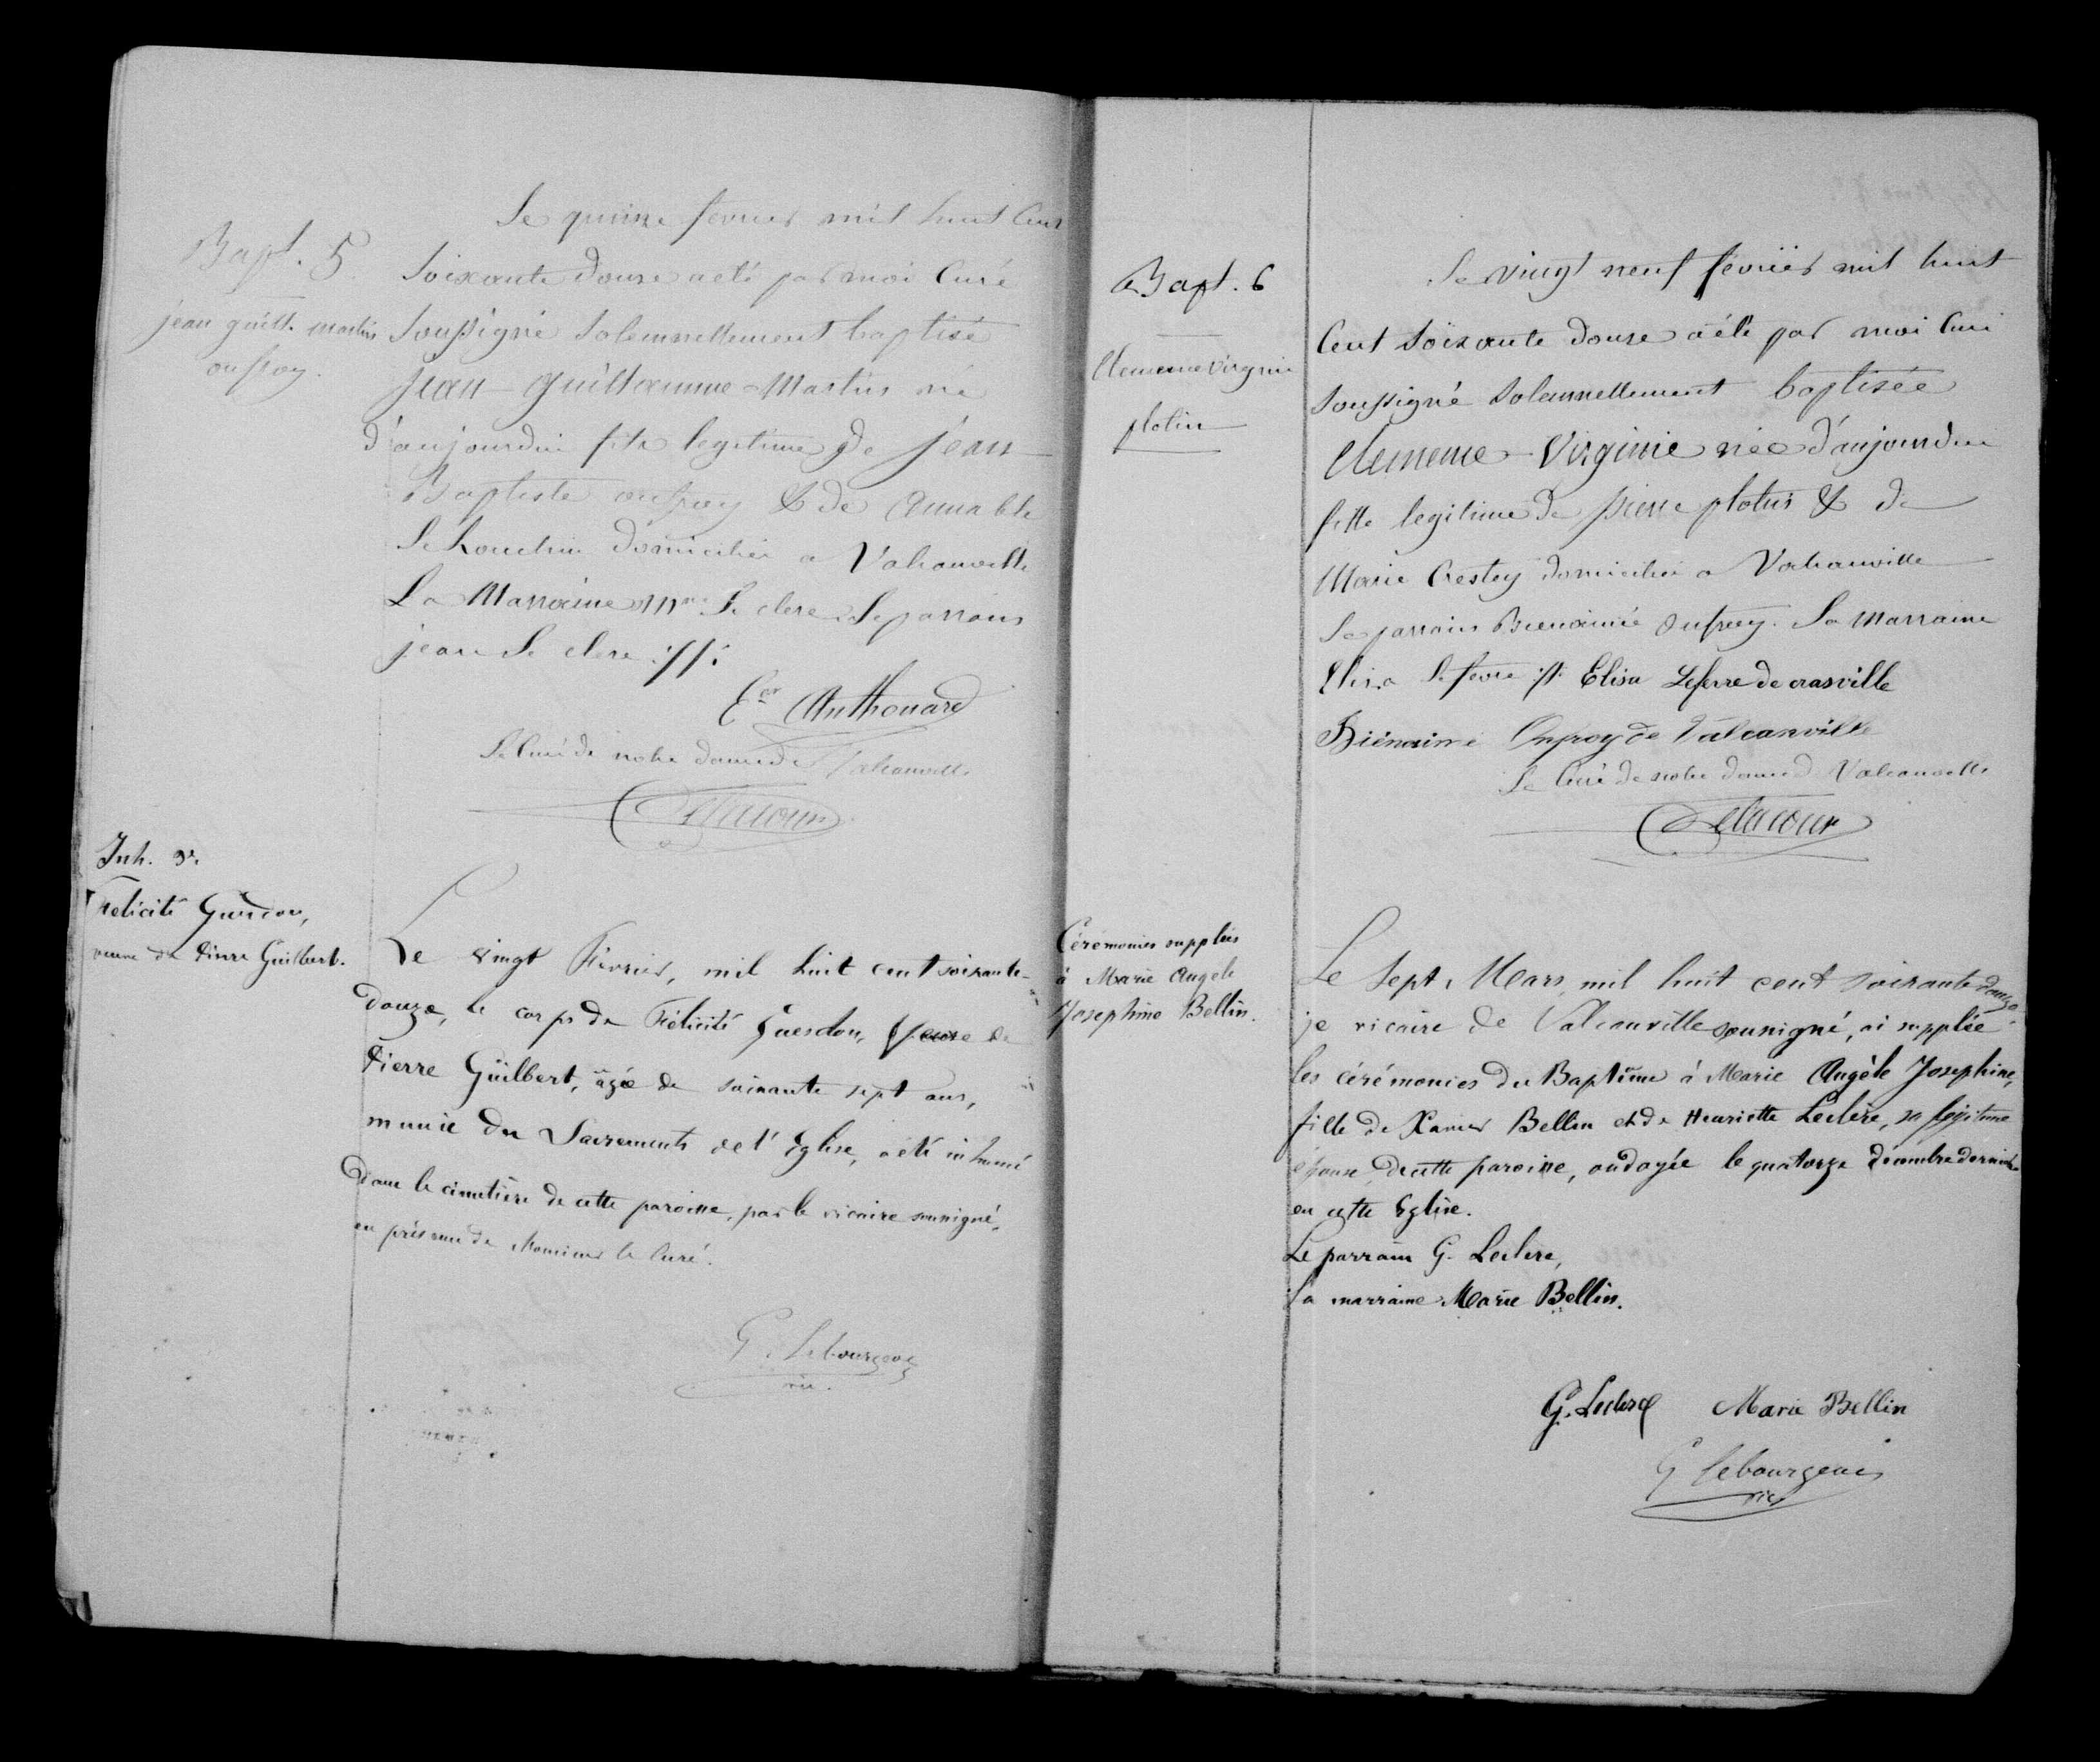 Bapt. 5
jean guill. martin
onfroy.
Le quinze fevrier mil huit cent
soixante douze a eté par moi Curé
soussigné solemnellement baptisé
jean guillaume Martin né
d'aujourdui fils legitime de jean
Baptiste onfroy & de Aimable
domicilié a Valcanville
La Marraine Le clerc Le parrain
jean Le clerc
Anthouard
Le Curé de notre dame de Valcanville
Delacour
Inh.
Felicité Guesdon,
veuve de Pierre Guilbert.
Le vingt Février, mil huit cent soixante-
douze, le corps de Félicité Guesdon, veuve de
Pierre Guilbert, âgée de soixante sept ans,
munie des Sacrements de l'Eglise, a été inhumé
dans le cimetière de cette paroisse, par le vicaire soussigné,
en présence de Monsieur le Curé.
G. Lebourgeois
vic.
Bapt. 6
Clemence Virginie
plotin
Le vingt neuf fevrier mil huit
Cent soixante douze a été par moi Curé
soussigné solemnellement baptisée
Clemence Virginie née d'aujourdui
fille legitime de pierre plotin & de
Marie Crestey domicilié a Valcanville
Le parrain Bienaimé onfroy. La Marraine
Elisa Lefevre Elisa Lefevre de crasville
Bienaimé Onfroy de Valcanville
Le Curé de notre dame de Valcanville
Delacour
Cérémonies supplées
à Marie Angele
Josephine Bellin.
Le Sept, Mars, mil huit cent soixante douze
je vicaire de Valcanville soussigné, ai supplée
les cérémonies du Baptême à Marie Angèle Josephine,
fille de Xavier Bellin et de Henriette Leclerc, sa légitime
épouse, de cette paroisse, ondoyée le quatorze décembre dernier
en cette Eglise.
Le parrain G. Leclerc,
La marraine Marie Bellin.
G. Leclerc Marie Bellin
G Lebourgeois
vic